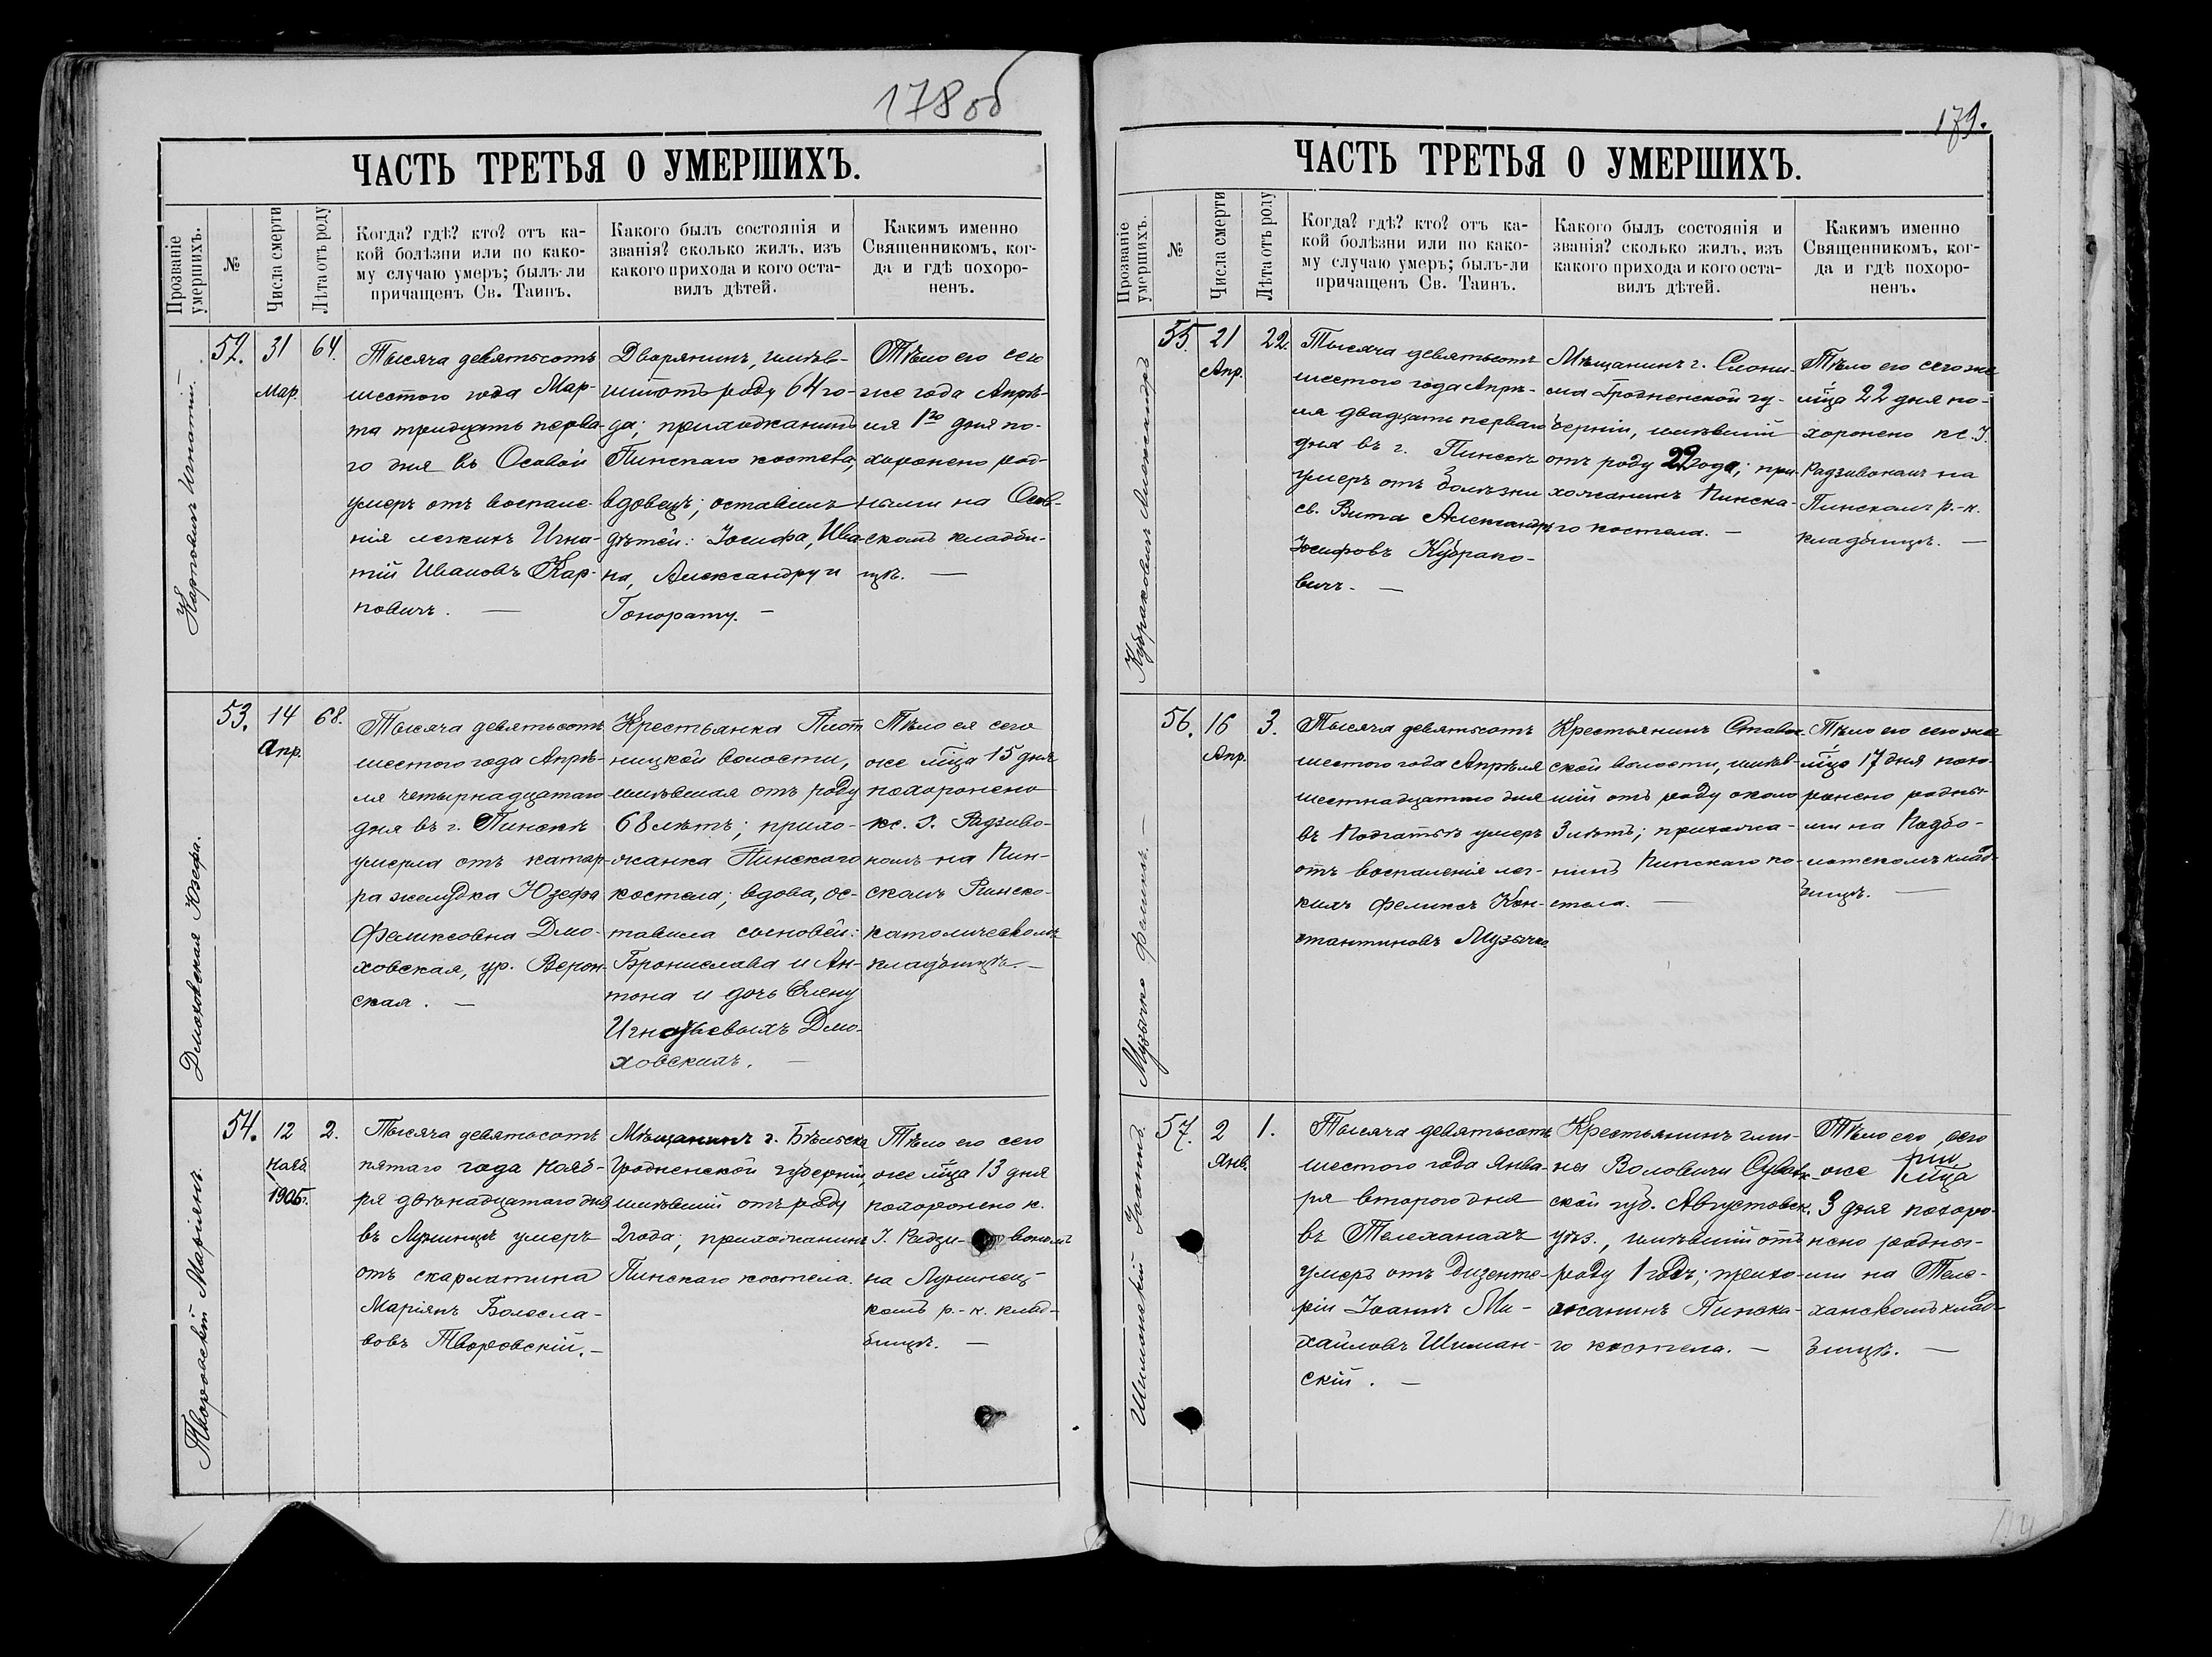 178 об
ЧАСТЬ ТРЕТЬЯ О УМЕРШИХЪ.
Прозваніе умершихъ.
№
Числа смерти
Лѣта отъ роду
Когда? гдѣ? кто? отъ ка-
кой болѣзни или по како-
му случаю умеръ; былъ-ли
причащенъ Св. Таинъ.
Какого былъ состоянія и
званія? сколько жилъ, изъ
какого прихода и кого оста-
вилъ дѣтей.
Какимъ именно
Священникомъ, ког-
да и гдѣ похоро-
ненъ.
Карповичъ Игнатій.—
52.
31
Мар.
64.
Тысяча девятьсотъ
шестого года Мар-
та тридцать перва-
го дня въ Осовой
умеръ отъ воспале-
нія легкихъ Игна-
тій Ивановъ Кар-
повичъ. —
Дворянинъ, имѣв-
шій отъ роду 64 го-
да; прихожанинъ
Пинскаго костела,
вдовецъ; оставилъ
дѣтей: Іосифа, Ива-
на, Александру и
Гонорату. —
Тѣло его сего
же года Апрѣ-
ля 1го дня по-
хоронено род-
ными на Осов-
скомъ кладби-
щѣ. —
Дмоховская Юзефа.
53.
14
Апр.
68.
Тысяча девятьсотъ
шестого года Апрѣ-
ля четырнадцатаго
дня въ г. Пинскѣ
умерла отъ катар-
ра желудка Юзефа
Феликсовна Дмо-
ховская, ур. Верон-
ская. —
Крестьянка Плот-
ницкой волости,
имѣвшая отъ роду
68 лѣтъ; прихо-
жанка Пинскаго
костела; вдова, ос-
тавила сыновей:
Бронислава и Ан-
тона и дочь Елену
Игнатьевыхъ Дмо-
ховскихъ. —
Тѣло ея сего
же мѣца 15 дня
похоронено
кс. І. Радзиво-
номъ на Пин-
скомъ Римско-
католическомъ
кладбищѣ. —
Творовскій Маріянъ.
54.
12
Нояб.
1905 г.
2.
Тысяча девятьсотъ
пятаго года Нояб-
ря двѣнадцатаго дня
въ Лунинцѣ умеръ
отъ скарлатина
Маріянъ Болесла-
вовъ Творовскій. —
Мѣщанинъ г. Бѣльска
Гродненской губерніи,
имѣвшій отъ роду
2 года; прихожанинъ
Пинскаго костела.
Тѣло его сего
же мѣца 13 дня
похоронено к.
І. Радзи- вономъ
на Лунинец-
комъ р.-к. клад-
бищѣ. —
179.
ЧАСТЬ ТРЕТЬЯ О УМЕРШИХЪ.
Прозваніе умершихъ.
№
Числа смерти
Лѣта отъ роду
Когда? гдѣ? кто? отъ ка-
кой болѣзни или по како-
му случаю умеръ; былъ-ли
причащенъ Св. Таинъ.
Какого былъ состоянія и
званія? сколько жилъ, изъ
какого прихода и кого оста-
вилъ дѣтей.
Какимъ именно
Священникомъ, ког-
да и гдѣ похоро-
ненъ.
Кубраковичъ Александръ
55.
21
Апр.
22.
Тысяча девятьсотъ
шестого года Апрѣ-
ля двадцать перваго
дня въ г. Пинскѣ
умеръ отъ болѣзни
св. Вита Александръ
Іосифовъ Кубрако-
вичъ. —
Мѣщанинъ г. Слони-
ма Гродненской гу-
берніи, имѣвшій
отъ роду 22 года; при-
хожанинъ Пинска-
го костела. —
Тѣло его сего же
мѣца 22 дня по-
хоронено кс. І.
Радзивономъ на
Пинскомъ р.-к.
кладбищѣ. —
Музычко Феликсъ. —
56.
16
Апр.
3.
Тысяча девятьсотъ
шестого года Апрѣля
шестнадцатаго дня
въ умеръ
отъ воспаленія лег-
кихъ Феликсъ Кон-
стантиновъ Музычко.
Крестьянинъ Ставок-
ской волости, имѣв-
шій отъ роду около
3 лѣтъ; прихожа-
нинъ Пинскаго ко-
стела. —
Тѣло его сего же
мѣца 17 дня похо-
ронено родны-
ми на Подбо-
лотскомъ клад-
бищѣ. —
Шиманскій Іоаннъ.
57.
2
Янв.
1.
Тысяча девятьсотъ
шестого года Янва-
ря второго дня
въ Телеханахъ
умеръ отъ дизенте-
ріи Іоаннъ Ми-
хайловъ Шиман-
скій. —
Крестьянинъ гми-
ны Воловичи Сувалк-
ской губ. Августовск.
уѣз., имѣвшій отъ
роду 1 годъ; прихо-
жанинъ Пинска-
го костела. —
Тѣло его сего
же мѣца
3 дня похоро-
нено родны-
ми на Теле-
ханскомъ клад-
бищѣ. —